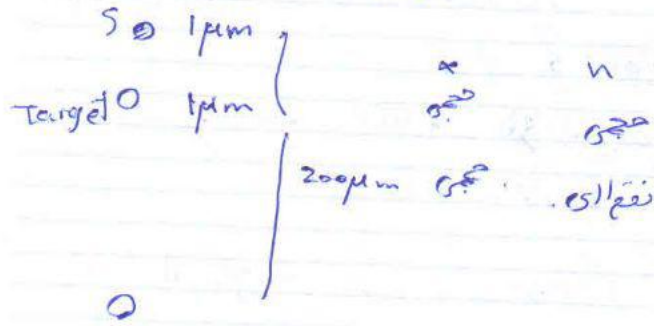 S 1μm
x n
Target 1μm حجمی حجمی
200μm حجمی نقطه‌ای